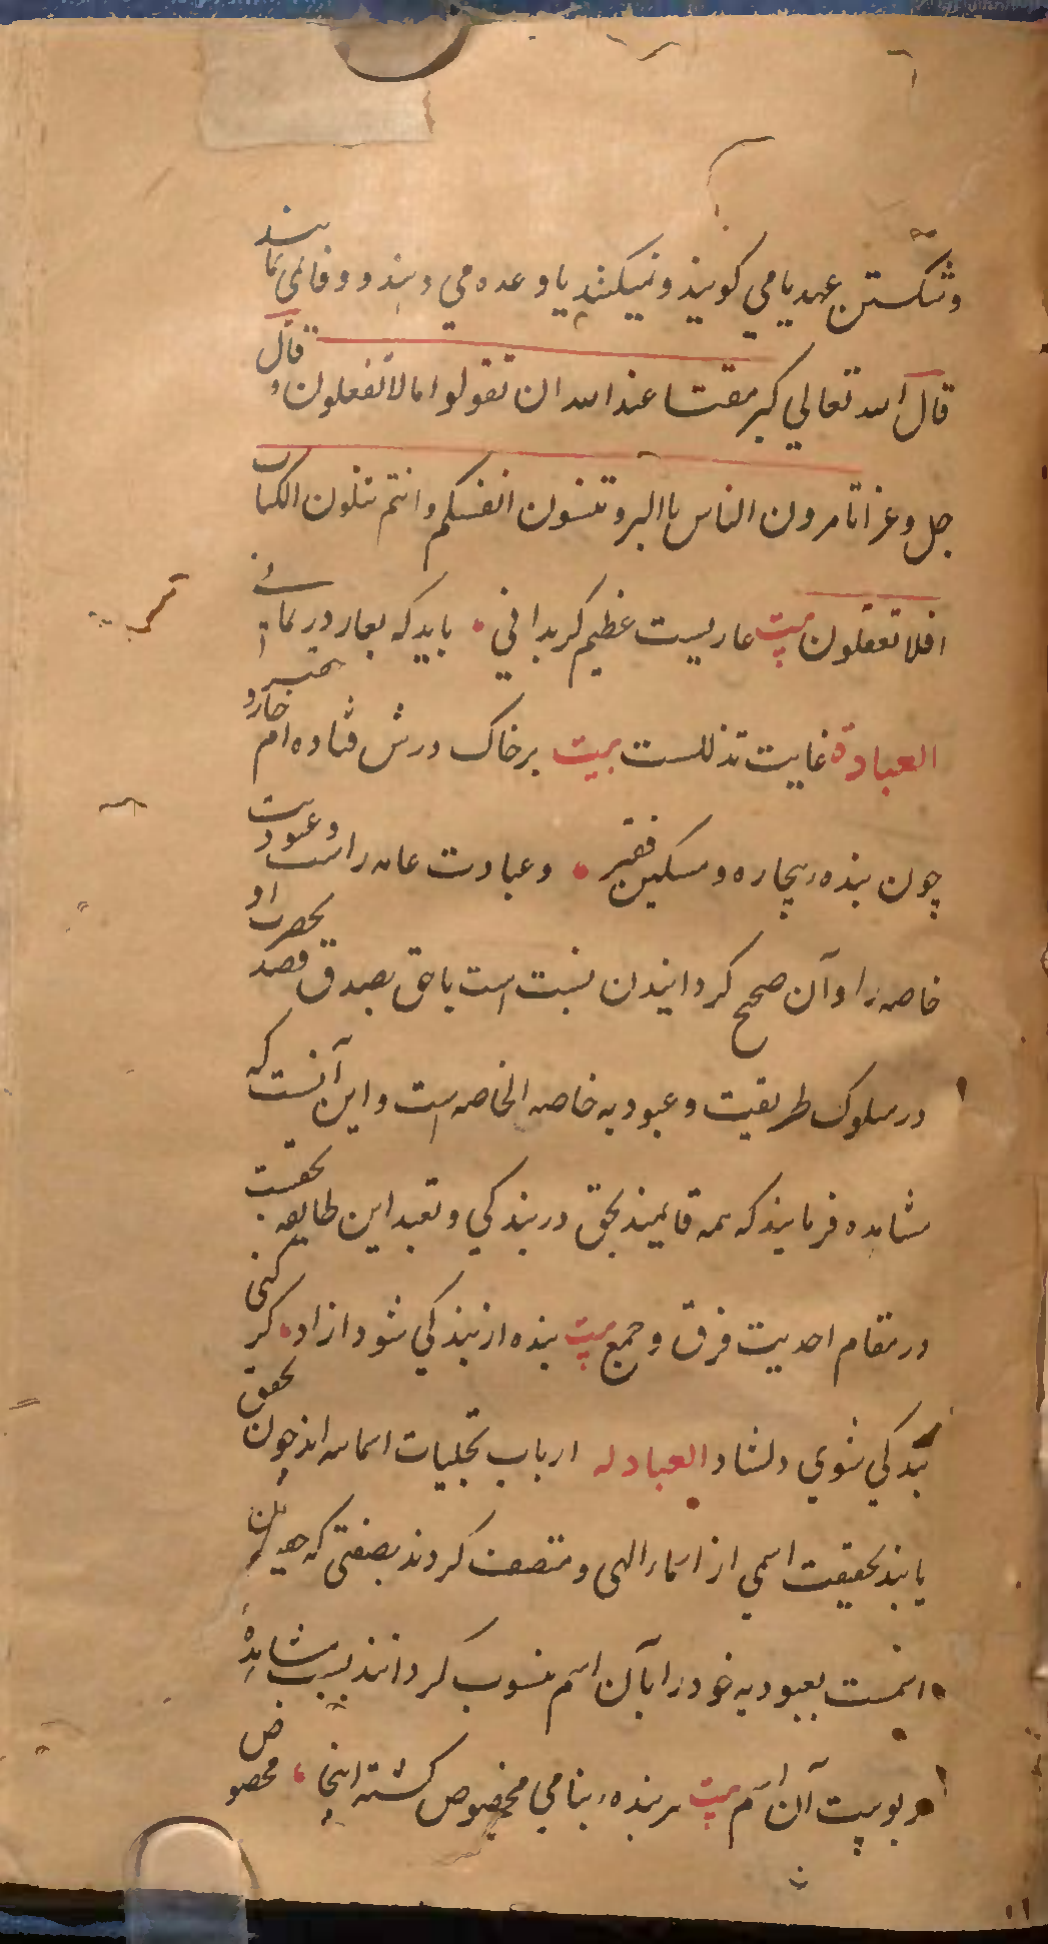 وشکستن عهد یا می کویند و نمیکنند یا وعده می دهند و وفا نمی نمایند
قال الله تعالی کبر مقتا عند الله ان تقولوا ما لا تفعلون و قال
جل و عز اتامرون الناس باالبر و تنسون انفسکم و انتم تتلون الکتاب
افلا تعقلون بیت عاریست عظیم کر بدانی • باید که بعار در نمانی
العبادة غایت تذللست بیت بر خاک درش فتاده ام خارو حقیر
چون بنده بیچاره و مسکین فقیر • و عبادت عامه راست و عبودیت
خاصه را و آن صحیح کردانیدن نسبت است با حق بصدق قصد بحضرت او
در سلوک طریقت و عبودیه خاصه الخاصه است و این آنست که
مشاهده فرمایند که همه قایمند بحق در بندکی و تعبد این طایفه بحقیقت
در مقام احدیت فرق و جمع بیت بنده از بندکی شود ازاد • کر کنی
بندکی شوی دلشاد العبادله ارباب تجلیات اسمااند چون تحقق
یابند بحقیقت اسمی از اسماء الهی و متصف کردند بصفتی که
اسمست بعبودیه خود را بآن اسم منسوب کردانند بسبب مشاهدهٔ
ربوبیت آن اسم بیت هر بنده بنامی مخصوص کشته اینجا • مخصوص